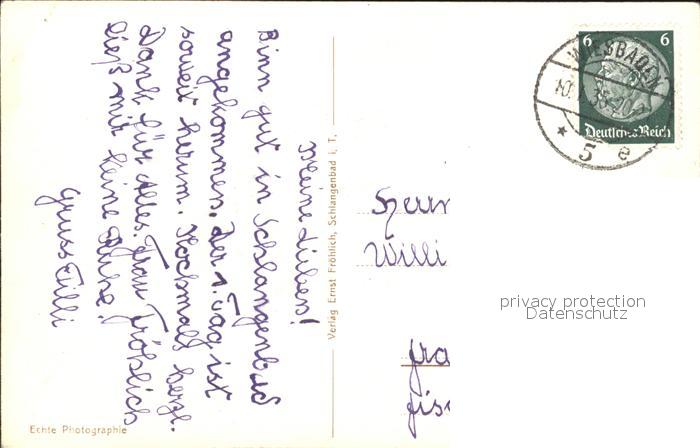 Meine Lieben!
Binn gut in Schlangenbad
angekommen. Der 1. Tag ist
soweit herum. Hochmals herzl.
Dank für Alles. Frau Fröhlich
ließ mir keine Ruhe!
Gruss Tilli
Verlag Ernst Fröhlich, Schlangenbad i. T.
Echte Photographie
6 6
Deutsches Reich
WIESBADEN
5 e
Herr
Willi
fra
fis
privacy protection
Datenschutz